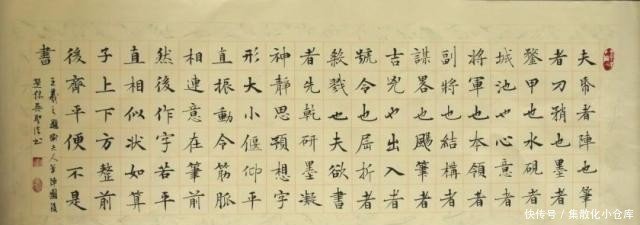 夫帋者陣也筆
者刀矟也墨者
鍪甲也水硯者
城池也心意者
將軍也本領者
副將也結構者
謀畧也颺筆者
吉兇也出入者
號令也屈折者
殺戮也夫欲書
者先乾研墨凝
神靜思預想字
形大小偃仰平
直振動令筋脈
相連意在筆前
然後作字若平
直相似狀如算
子上下方整前
後齊平便不是
書
王羲之題衛夫人筆陣圖後
快传号 / 集散化小仓库